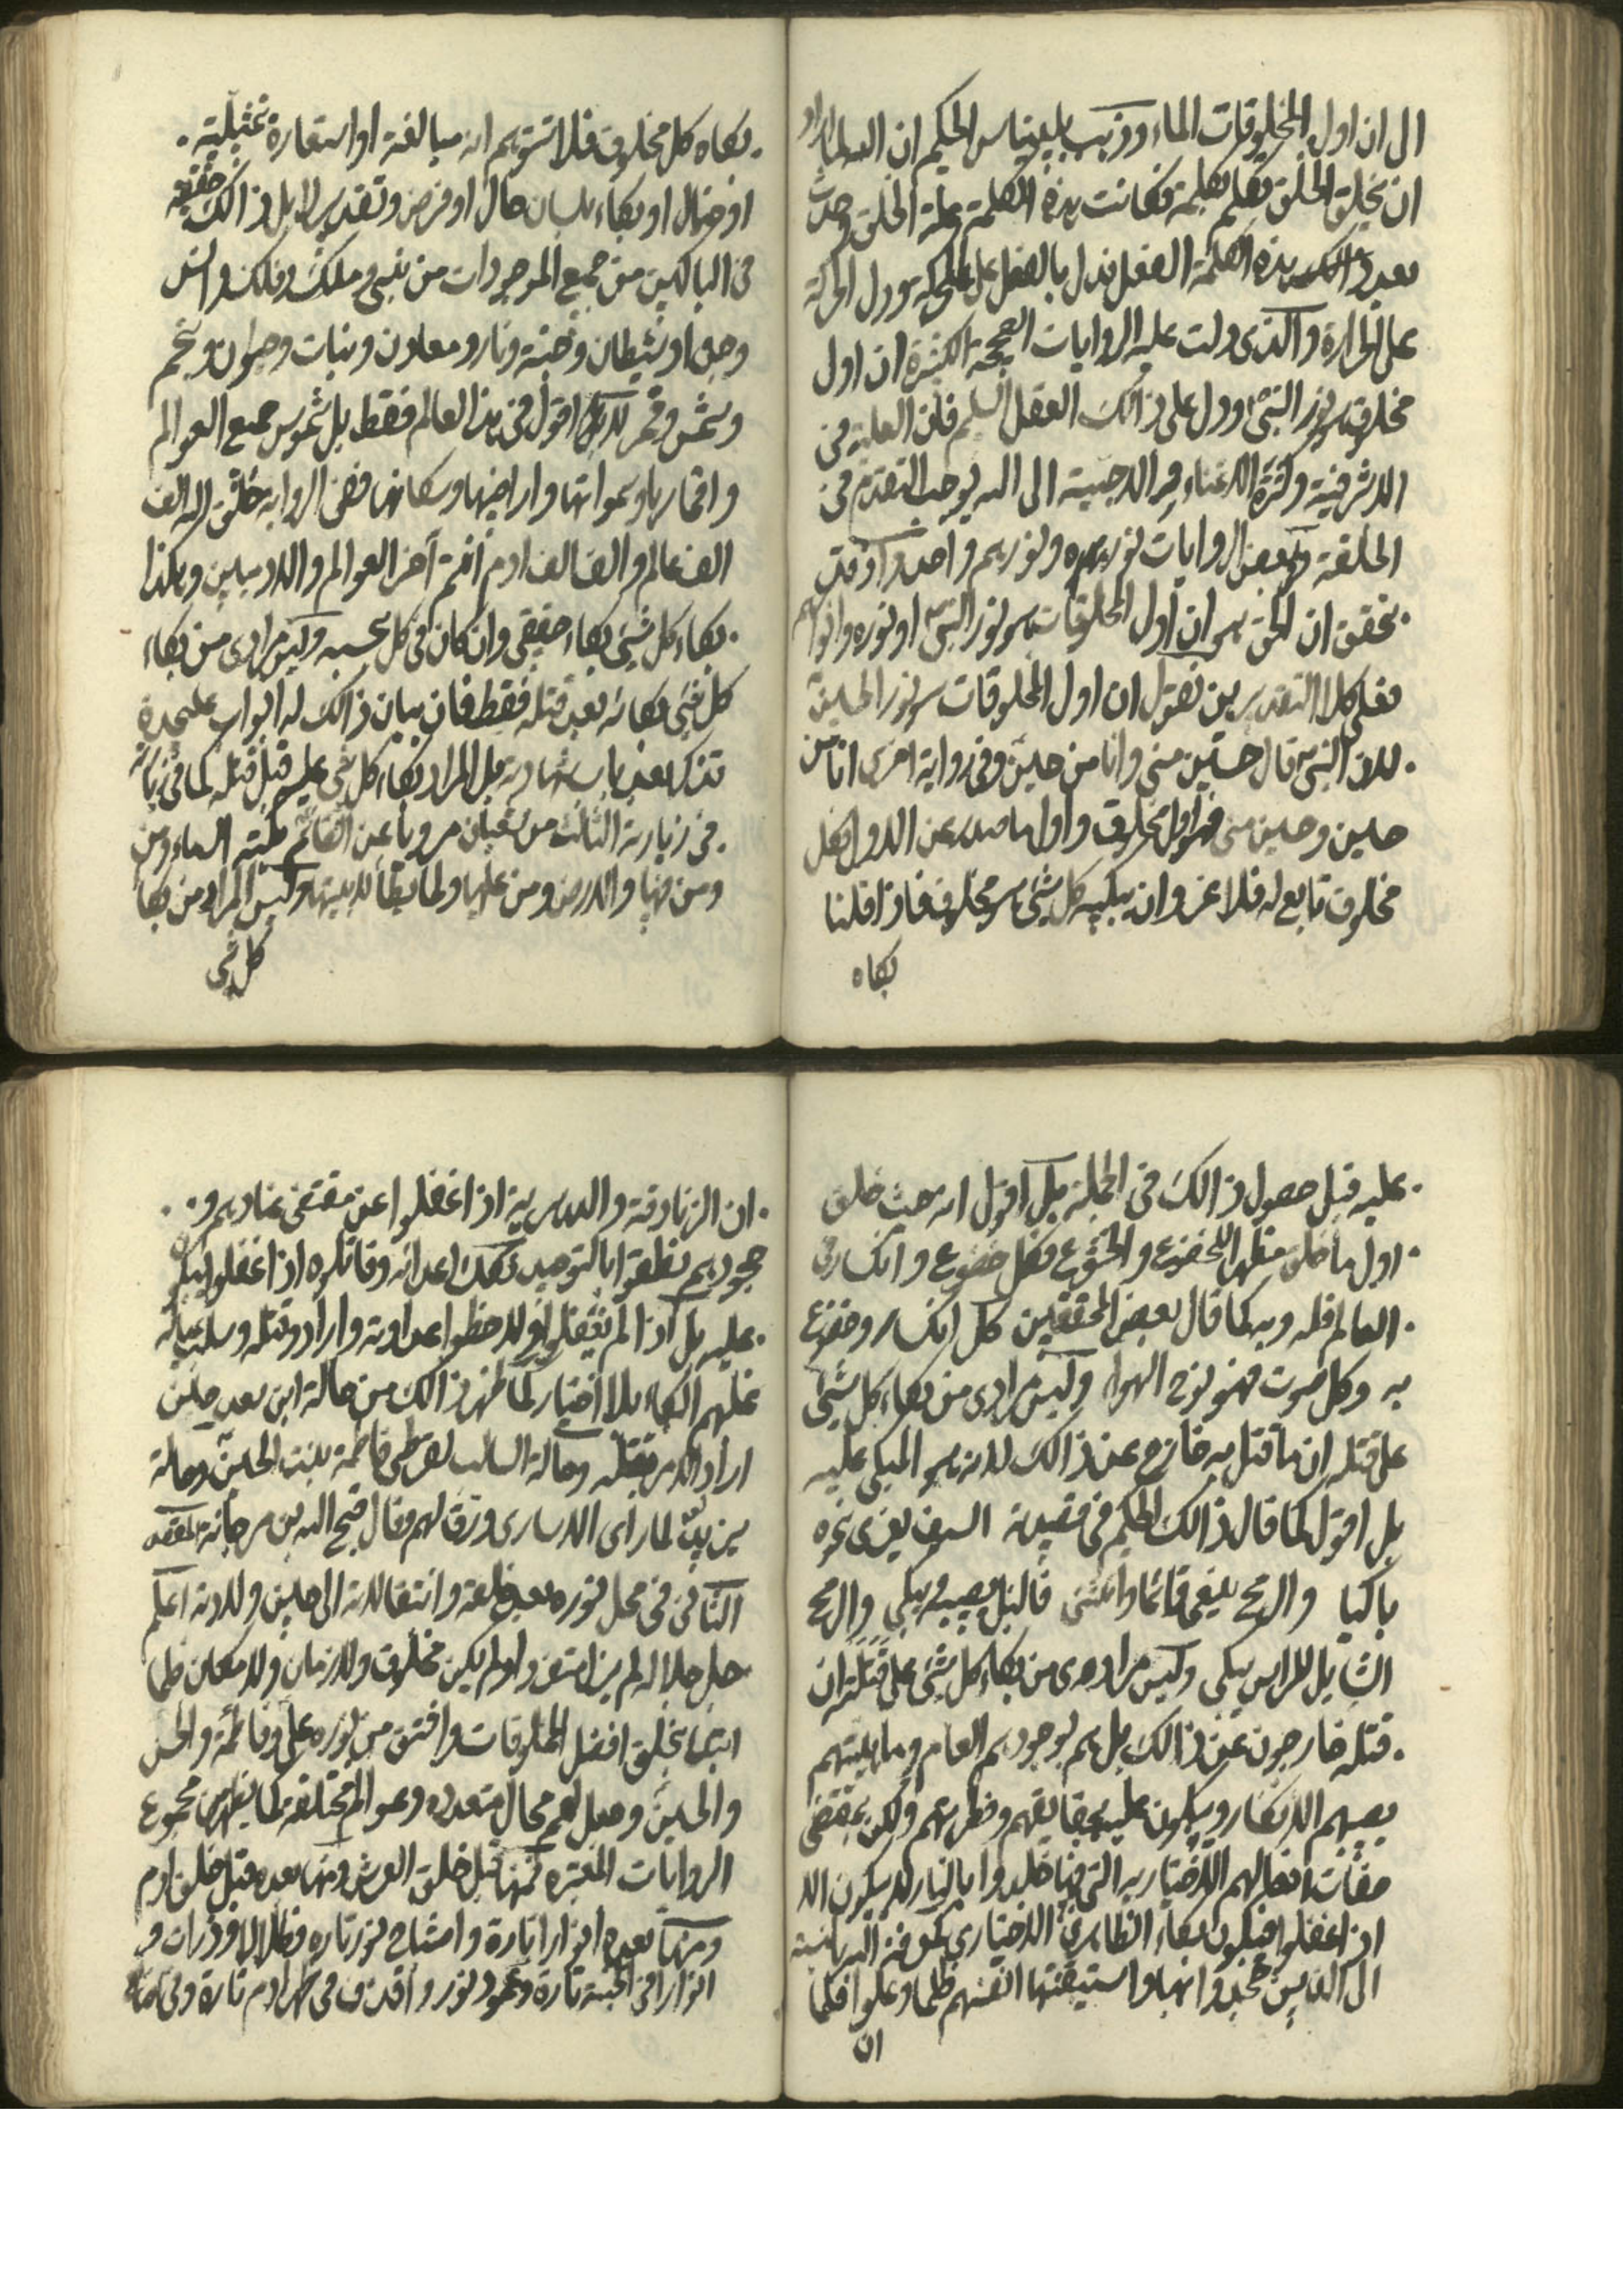 الى ان اول المخلوقات الماء وذهب بليناس الحكيم ان الله لما اراد
ان يخلق الخلق تكلم بكلمة فكانت هذه الكلمة علة الخلق وحدث
بعد ذالك هذه الكلمة الفعل فدل بالفعل على الحركة ودل الحركة
على الحرارة والذى دلت عليه الروايات الصحيحة الكثيرة ان اول
مخلوق هو نور النبى ودل على ذالك العقل السليم فان العلية فى
الاشرفية وكثرة الاعتناء والاحبية الى الله يوجب التقدم فى
الخلقة وبعض الروايات نوره ونورهم واحد وقد
تحقق ان الحق هو ان اول المخلوقات هو نور النبى او نوره وانوارهم
فعلى كلا التقديرين نقول ان اول المخلوقات هو نور الحسين
لان النبى قال حسين منى وانا من حسين وفى رواية اخرى انا من
حسين وحسين منى فهو اول مخلوق واول ما صدر عن الاول فكل
مخلوق تابع له فلا غرو ان يبكيه كل شئ هو مخلوق فاذا قلنا
بكاه
بكاه كل مخلوق فلا تتوهم انه مبالغة او استعارة تمثيلية
او خيال او بكاء بلسان حال او فرض وتقدير لا بل ذالك حقيقة
فى الباكين من جميع الموجودات من نبى وملك وفلك وانس
وجن او شيطان وجنة ونار ومعادن ونبات وحيوان ونجم
وشمس وقمر لا اقول فى هذا العالم فقط بل شموس جميع العوالم
واقمارها وسمواتها واراضيها وسكانها ففى الرواية خلق الله الف
الف عالم والف الف ادم انتم آخر العوالم والادميين وهكذا
بكاء كل شئ بكاء حقيقى وان كان فى كل بحسبه وليس مرادى من بكاء
كل شئ بكائه بعد قتله فقط فان بيان ذالك له ابواب عليحدة
تذكر بعد باب شهادته بل المراد بكاء كل شئ عليه قبل قتله كما فى
فى زيارته الثالث من شعبان مرويا عن القائم بكته السماء ومن
ومن فيها والارض ومن عليها ولما يطأ لابتيها وليس المراد من بكاء
كل شئ
عليه قبل حصول ذالك فى الجملة بل اقول انه حيث خلق
اول ما خلق مظهرا للخضوع والخشوع فكل خضوع وانكسار فى
العالم فله وبه كما قال بعض المحققين كل انكسار وخضوع
به وكل صوت فهو نوح الهواء وليس مرادى من بكاء كل شئ
على قتله ان ما قتل به خارج عن ذالك لانه هو المبكى عليه
بل اقول كما قال ذالك الحكيم فى قصيدته السيف يفرى نحره
باكيا والرمح ينعى قائما وانثنى فالنبل يصيبه ويبكى والرمح
الشايل للراس يبكى وليس مرادى من بكاء كل شئ على قتله ان
قتله خارجون عن ذالك بل هم بوجودهم العام وماهيتهم
يصيهم الانكسار ويبكون عليه بحقايقهم وفطرتهم ولكن بمقتضى
صفات افعالهم الاختياريه التى بها خلدوا بالنار لا يبكون الا
اذا غفلوا فيبكون بكاء الظاهرى الاختيارى كمعرفة بالنسبة
الى الذين جحدوا بها واستيقنتها انفسهم ظلما وعلوا فكما
ان
ان الزنادقة والدهرية اذا غفلوا عن مقتضى عنادهم و
جحودهم نطقوا بالتوحيد فكذلك اعدائه وقاتلوه اذا غفلوا يبكو
عليه بل اذا لم يغفلوا ولاحظوا عداوته وارادوا قتله وسلب عياله
غلبهم البكاء بلا اختيار كما ظهر ذالك من حالة ابن سعد حين
اراد الامر بقتله وحالة السالب لقرطى فاطمة بنت الحسين وحالة
يزيد لما راى الاسارى ورق لهم وقال قبح الله بن مرجانة المقصد
الثانى فى محل نوره بعد خلقه وانتقالاته الى حين ولادته اعلم
جل جلاله لم يزل متفردا ولم يكن مخلوق ولا زمان ولا مكان فلما
ابتدأ بخلق افضل المخلوقات وافتق من نوره على وفاطمة والحسن
والحسين وجعل لهم محال متعدده وعوالم مختلفة كما يظهر من مجموع
الروايات المعتبره فمنها قبل خلق العرش ومنها بعده قبل خلق ادم
ومنها بعده انوارا تارة واشباح نور تاره وظلالا وذرات و
انوارا فى الجنة تارة وعمود نور واقذف فى ظهر ادم تارة وفى